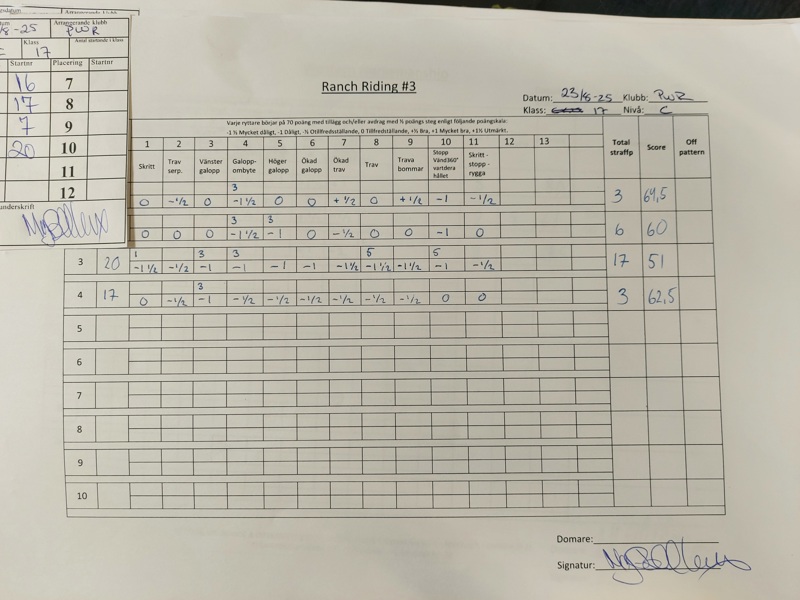 Arrangerande klubb
-25 PWR
Klass Antal startande i klass
17
Startnr Placering Startnr
16 7
17 8
7 9
20 10
11
12
underskrift
Ranch Riding #3
Datum: 23/8-25 Klubb: PWR
Klass: 17 Nivå: C
Varje ryttare börjar på 70 poäng med tillägg och/eller avdrag med ½ poängs steg enligt följande poängskala:
-1 ½ Mycket dåligt, -1 Dåligt, -½ Otillfredsställande, 0 Tillfredsställande, +½ Bra, +1 Mycket bra, +1½ Utmärkt.
1 2 3 4 5 6 7 8 9 10 11 12 13 Total straffp Score Off pattern
Skritt Trav serp. Vänster galopp Galopp-ombyte Höger galopp Ökad galopp Ökad trav Trav Trava bommar Stopp Vänd360° vartdera hållet Skritt - stopp - rygga
3
0 -½ 0 -1½ 0 0 +½ 0 +½ -1 -½ 3 64,5
3 3
0 0 0 -1½ -1 0 -½ 0 0 -1 0 6 60
1 3 3 5 5
3 20 -1½ -½ -1 -1 -1 -1 -1½ -1½ -1½ -1 -½ 17 51
3
4 17 0 -½ -1 -½ -½ -½ -½ -½ -½ 0 0 3 62,5
5
6
7
8
9
10
Domare:
Signatur: